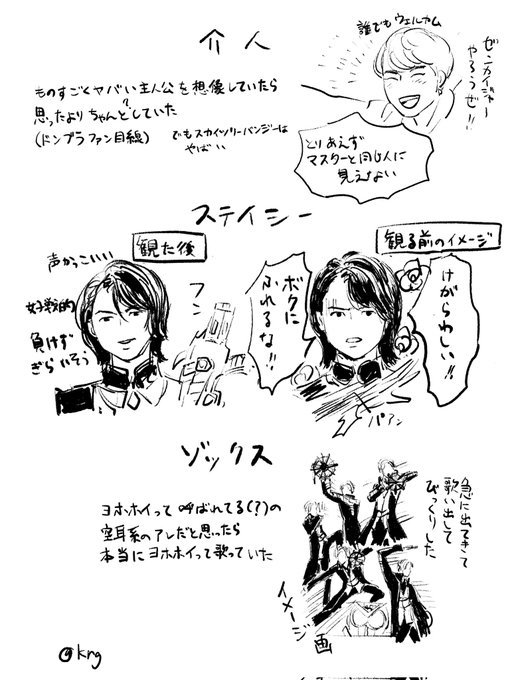 介人
誰でもウェルカム
ゼンカイジャー
やろうぜ!!
ものすごくヤバい主人公を想像していたら
思ったよりちゃんと?していた
(ドンブラファン目線)
でもスカイツリーバンジーは
やばい
とりあえず
マスターと同じ人に
見えない
ステイシー
観た後
声かっこいい
好戦的
負けず
ぎらいそう
フン
観る前のイメージ
けがらわしい!!
ボクに
ふれるな!!
パァン
ゾックス
ヨホホイって呼ばれてる(?)の
空耳系のアレだと思ったら
本当にヨホホイって歌っていた
急に出てきて
歌い出して
びっくりした
イメージ画
@krg